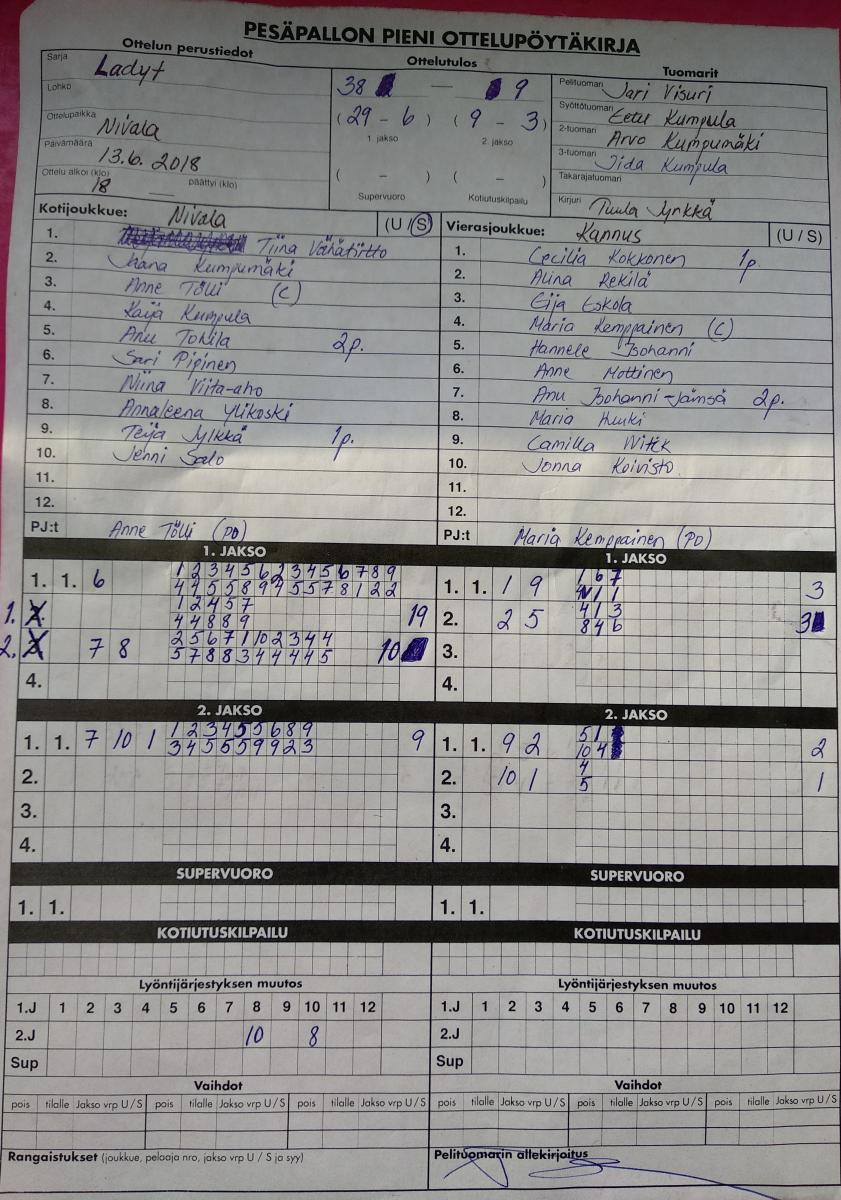 PESÄPALLON PIENI OTTELUPÖYTÄKIRJA
Ottelun perustiedot
Sarja Ladyt
Lohko
Ottelupaikka Nivala
Päivämäärä 13.6. 2018
Ottelu alkoi (klo) 18 päättyi (klo)
Ottelutulos
38 — 9
(29 - 6) (9 - 3)
1. jakso 2. jakso
( - ) ( - )
Supervuoro Kotiutuskilpailu
Tuomarit
Pelituomari Jari Visuri
Syöttötuomari Eetu Kumpula
2-tuomari Arvo Kumpumäki
3-tuomari Iida Kumpula
Takarajatuomari
Kirjuri Tuula Jyrkkä
Kotijoukkue: Nivala (U / S)
1. Tiina Vähätiitto
2. Jhana Kumpumäki
3. Anne Tölli (C)
4. Kaija Kumpula
5. Anu Tohila 2p.
6. Sari Pipinen
7. Niina Viita-aho
8. Annaleena Ylikoski
9. Teija Jylkkä 1p.
10. Jenni Salo
11.
12.
PJ:t Anne Tölli (PD)
Vierasjoukkue: Kannus (U / S)
1. Cecilia Kokkonen 1p.
2. Alina Rekilä
3. Eija Eskola
4. Maria Kemppainen (C)
5. Hannele Isohanni
6. Anne Mottinen
7. Anu Isohanni-Jämsä 2p.
8. Maria Huuki
9. Camilla Witck
10. Jonna Koivisto
11.
12.
PJ:t Maria Kemppainen (PD)
1. JAKSO
1. 1. 6 1 2 3 4 5 6 2 3 4 5 6 7 8 9
4 4 5 5 8 9 4 5 5 7 8 1 2 2
1. 2. 1 2 4 5 7
4 4 8 8 9 19
2. 3. 7 8 2 5 6 7 1 10 2 3 4 4
5 7 8 8 3 4 4 4 4 5 10
4.
1. JAKSO
1. 1. 1 9 1 6 7
4 1 1 3
2. 2 5 4 1 3
8 4 6 3
3.
4.
2. JAKSO
1. 1. 7 10 1 1 2 3 4 5 5 6 8 9
3 4 5 5 5 9 9 2 3 9
2.
3.
4.
2. JAKSO
1. 1. 9 2 5 1
10 4 2
2. 10 1 4
5 1
3.
4.
SUPERVUORO
1. 1.
SUPERVUORO
1. 1.
KOTIUTUSKILPAILU
KOTIUTUSKILPAILU
Lyöntijärjestyksen muutos
1.J 1 2 3 4 5 6 7 8 9 10 11 12
2.J 10 8
Sup
Lyöntijärjestyksen muutos
1.J 1 2 3 4 5 6 7 8 9 10 11 12
2.J
Sup
Vaihdot
pois tilalle Jakso vrp U / S pois tilalle Jakso vrp U / S pois tilalle Jakso vrp U / S
Vaihdot
pois tilalle Jakso vrp U / S pois tilalle Jakso vrp U / S pois tilalle Jakso vrp U / S
Rangaistukset (joukkue, pelaaja nro, jakso vrp U / S ja syy)
Pelituomarin allekirjoitus